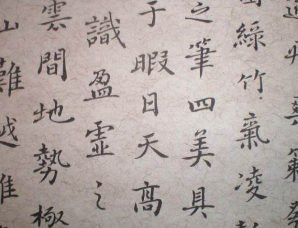 爽籟發
綠竹氣凌
之筆四美具
于暇日天高
識盈虛之
雲間地勢極
山難越誰